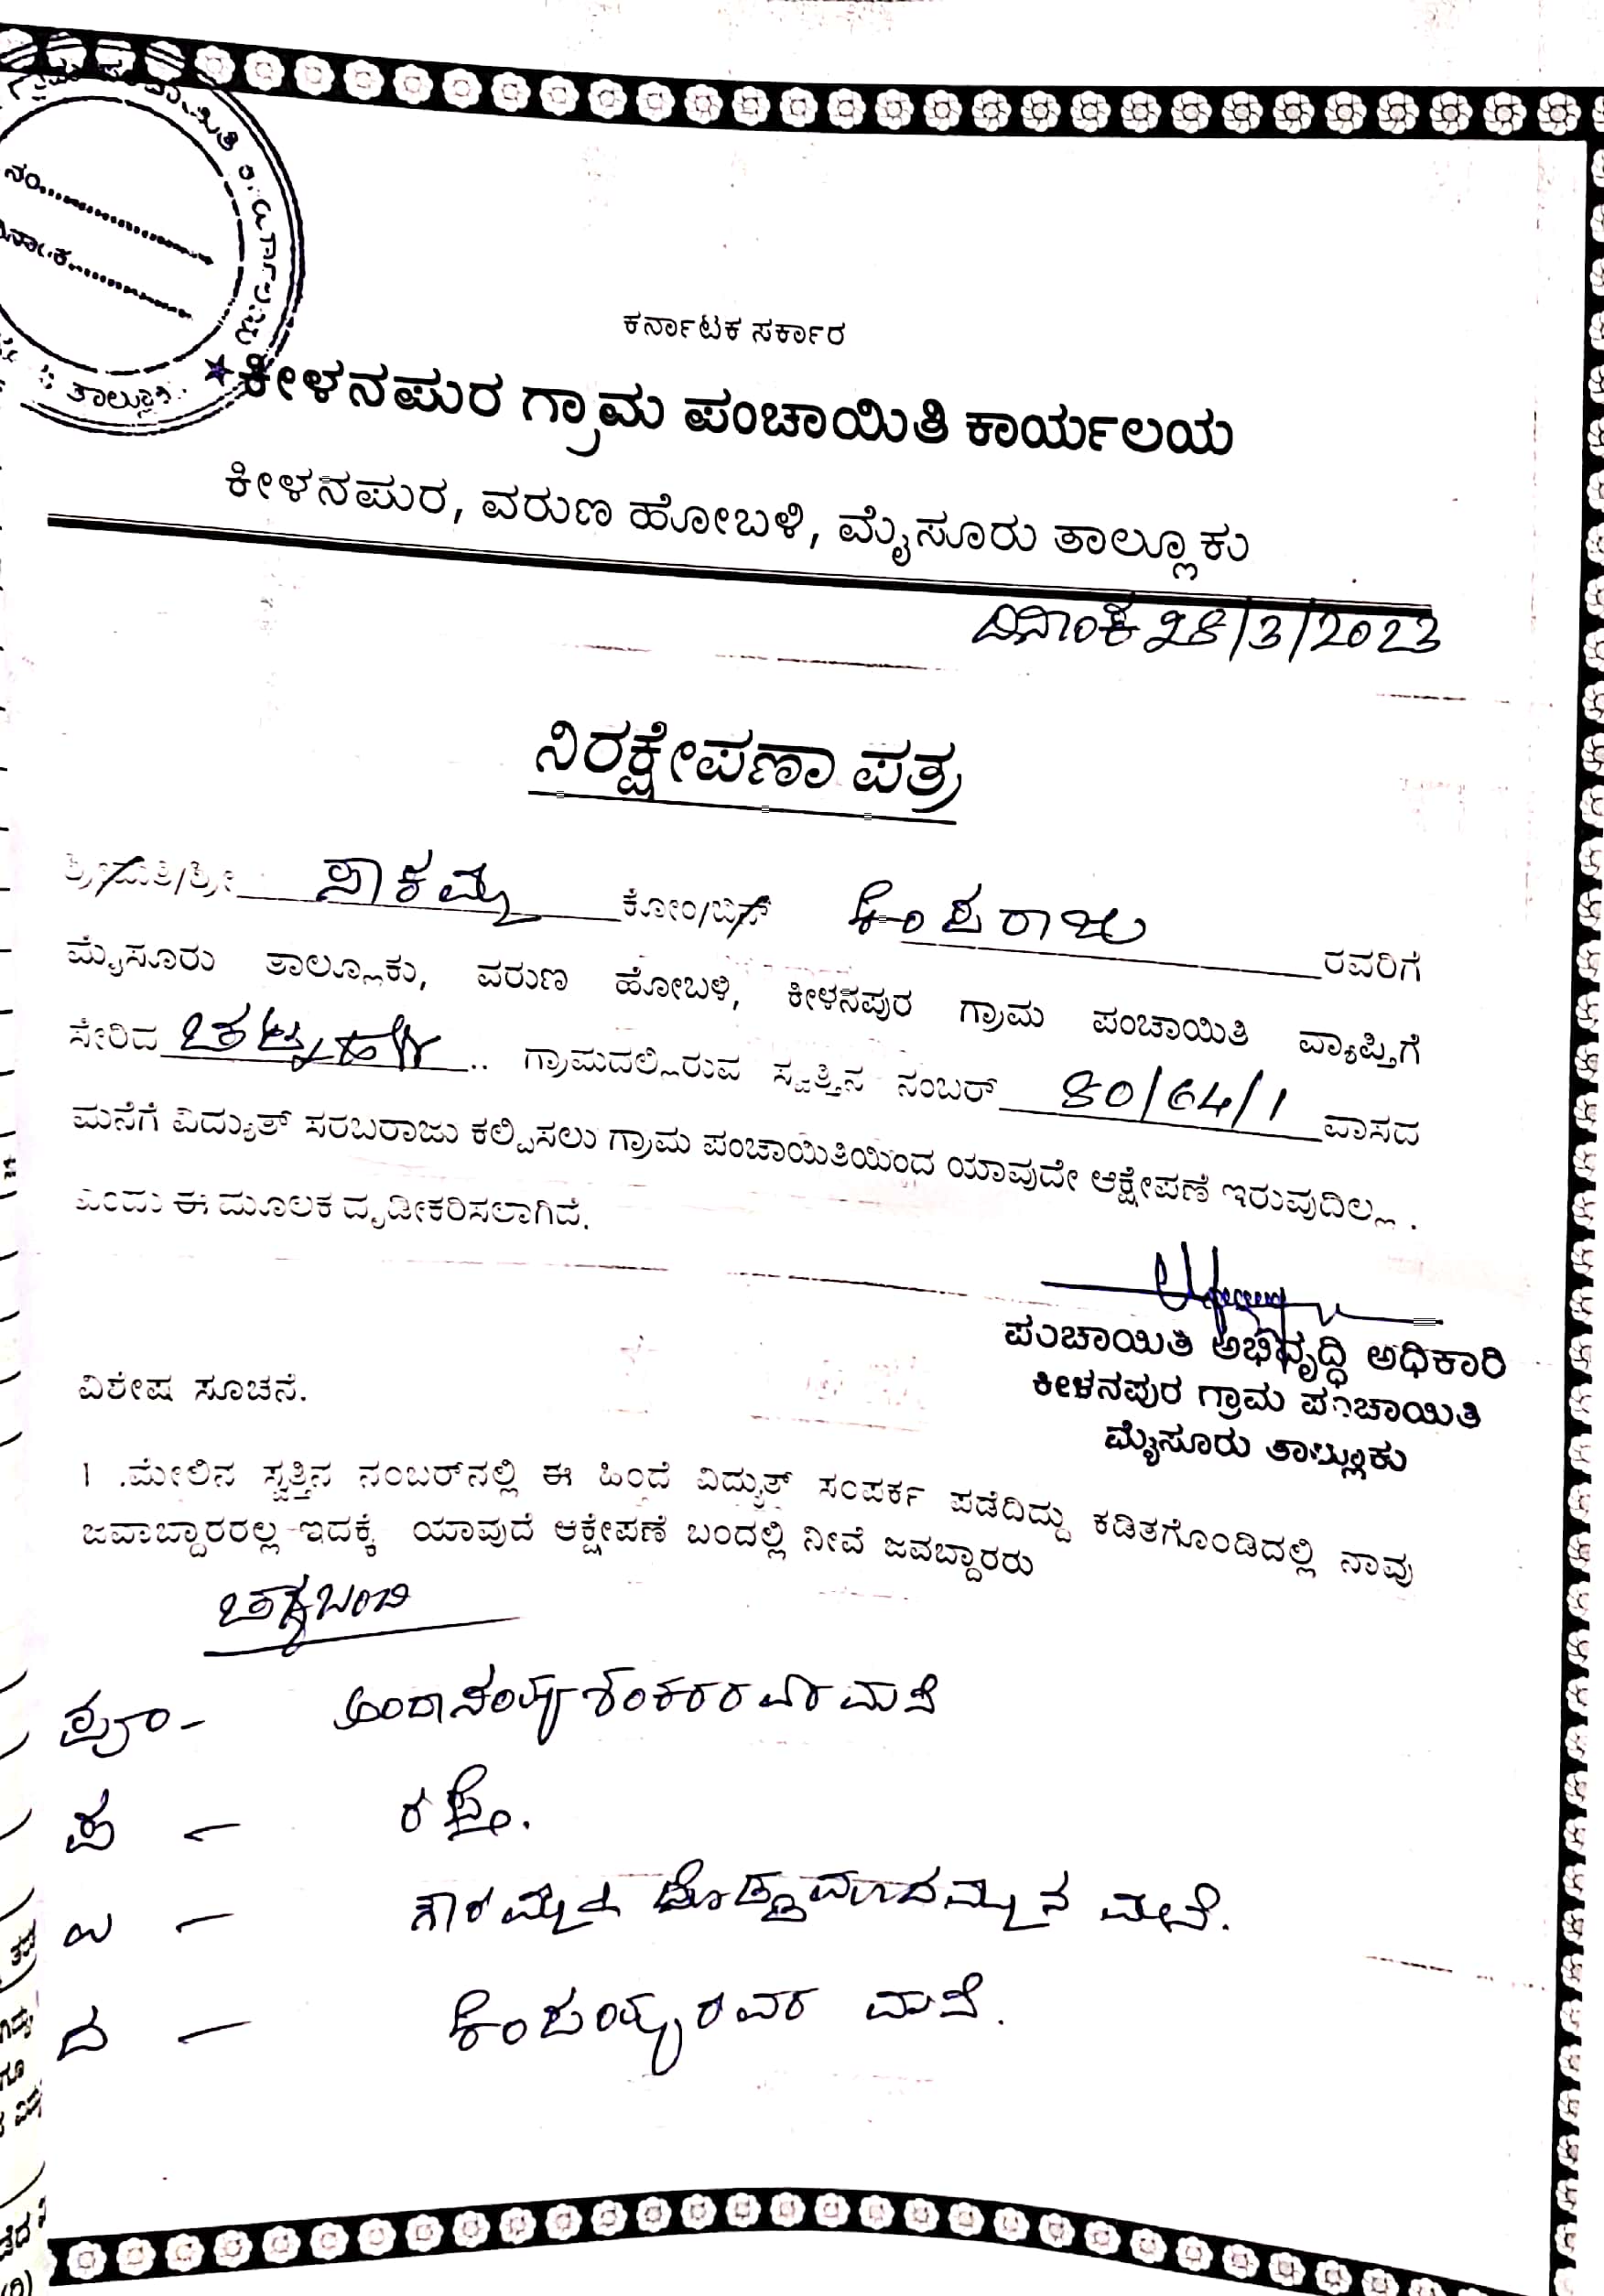 ನಂ
ತಾಲ್ಲೂಕು
ಕರ್ನಾಟಕ ಸರ್ಕಾರ
ಕೀಳನಪುರ ಗ್ರಾಮ ಪಂಚಾಯಿತಿ ಕಾರ್ಯಲಯ
ಕೀಳನಪುರ, ವರುಣ ಹೋಬಳಿ, ಮೈಸೂರು ತಾಲ್ಲೂಕು
ದಿನಾಂಕ 28/3/2023
ನಿರಕ್ಷೇಪಣಾ ಪತ್ರ
ಶ್ರೀಮತಿ/ಶ್ರೀ ಸಾಕಮ್ಮ ಕೋಂ/ಬಿನ್ ಕೆಂಪರಾಜು ರವರಿಗೆ
ಮೈಸೂರು ತಾಲ್ಲೂಕು, ವರುಣ ಹೋಬಳಿ, ಕೀಳನಪುರ ಗ್ರಾಮ ಪಂಚಾಯಿತಿ ವ್ಯಾಪ್ತಿಗೆ
ಸೇರಿದ .. ಗ್ರಾಮದಲ್ಲಿರುವ ಸ್ವತ್ತಿನ ನಂಬರ್ 80/64/1 ವಾಸದ
ಮನೆಗೆ ವಿದ್ಯುತ್ ಸರಬರಾಜು ಕಲ್ಪಿಸಲು ಗ್ರಾಮ ಪಂಚಾಯಿತಿಯಿಂದ ಯಾವುದೇ ಆಕ್ಷೇಪಣೆ ಇರುವುದಿಲ್ಲ .
ಎಂದು ಈ ಮೂಲಕ ದೃಡೀಕರಿಸಲಾಗಿದೆ.
ಪಂಚಾಯಿತಿ ಅಭಿವೃದ್ಧಿ ಅಧಿಕಾರಿ
ಕೀಳನಪುರ ಗ್ರಾಮ ಪಂಚಾಯಿತಿ
ಮೈಸೂರು ತಾಲ್ಲೂಕು
ವಿಶೇಷ ಸೂಚನೆ.
1 .ಮೇಲಿನ ಸ್ವತ್ತಿನ ನಂಬರ್‌ನಲ್ಲಿ ಈ ಹಿಂದೆ ವಿದ್ಯುತ್ ಸಂಪರ್ಕ ಪಡೆದಿದ್ದು ಕಡಿತಗೊಂಡಿದಲ್ಲಿ ನಾವು
ಜವಾಬ್ದಾರರಲ್ಲ ಇದಕ್ಕೆ ಯಾವುದೆ ಆಕ್ಷೇಪಣೆ ಬಂದಲ್ಲಿ ನೀವೆ ಜವಬ್ದಾರರು
ಚಕ್ಕಬಂದಿ
ಪೂ - ಶಂಕರರವರ ಮನೆ
ಪ - ರಸ್ತೆ.
ಉ - ದೊಡ್ಡಮಾದಮ್ಮನ ಮನೆ.
ದ - ಕೆಂಪಯ್ಯರವರ ಮನೆ.